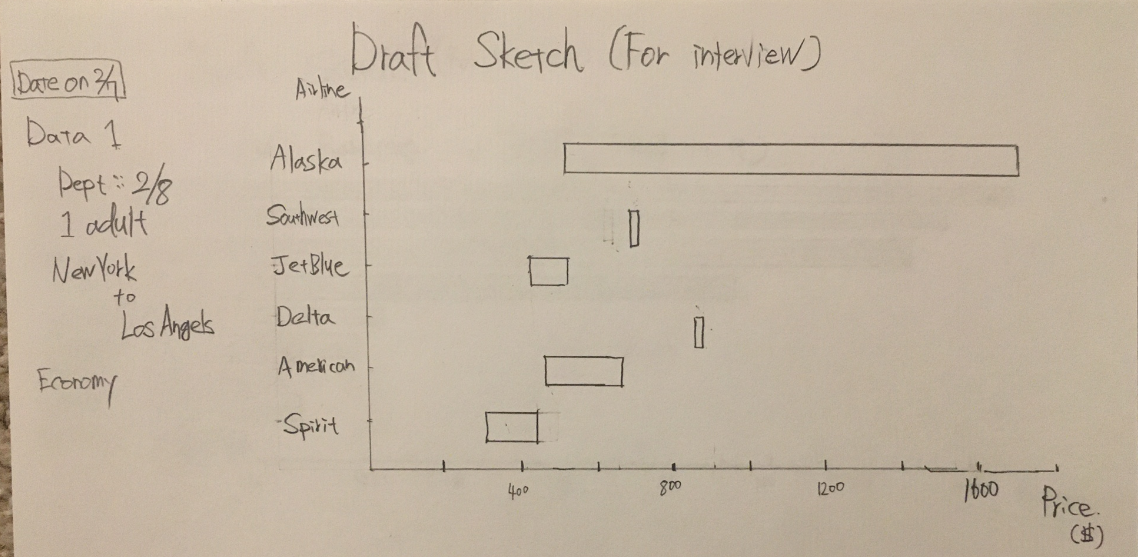 Draft Sketch (For interview)
Date on 2/7
Data 1
Dept : 2/8
1 adult
New York
to
Los Angels
Economy
Airline
Alaska
Southwest
JetBlue
Delta
American
Spirit
400
800
1200
1600
Price.
($)